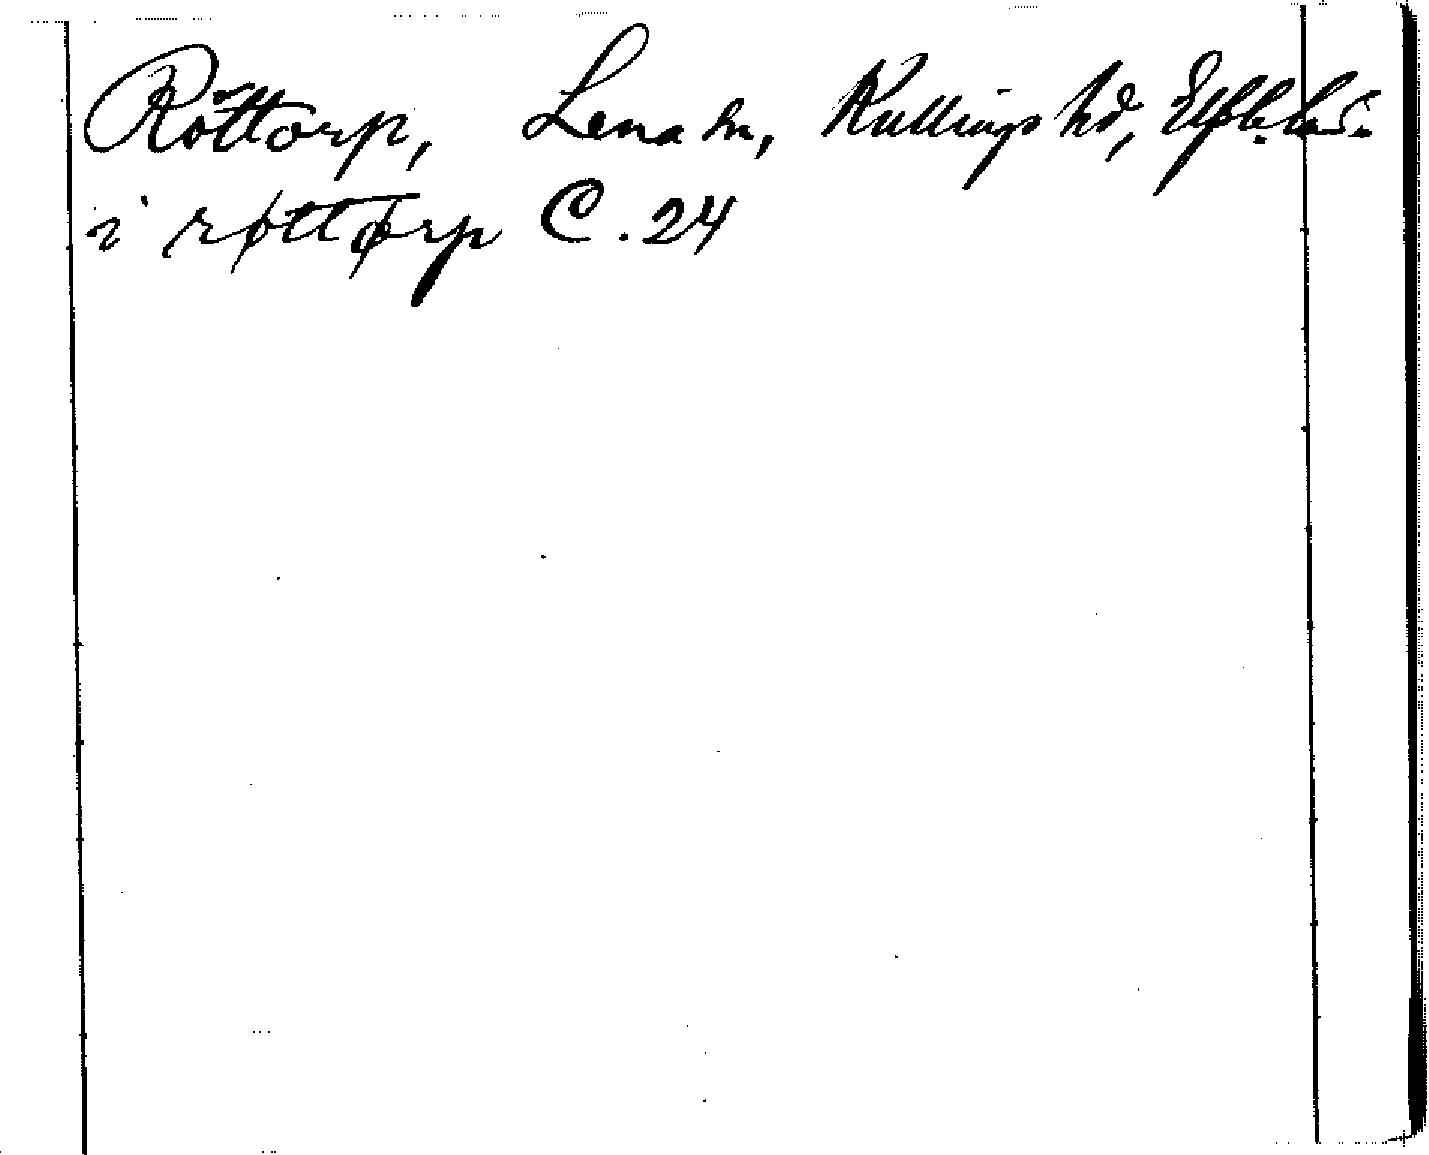 Röttorp, Lena sn, Kullings hd, Elfsb. län.
i røttørp C. 24